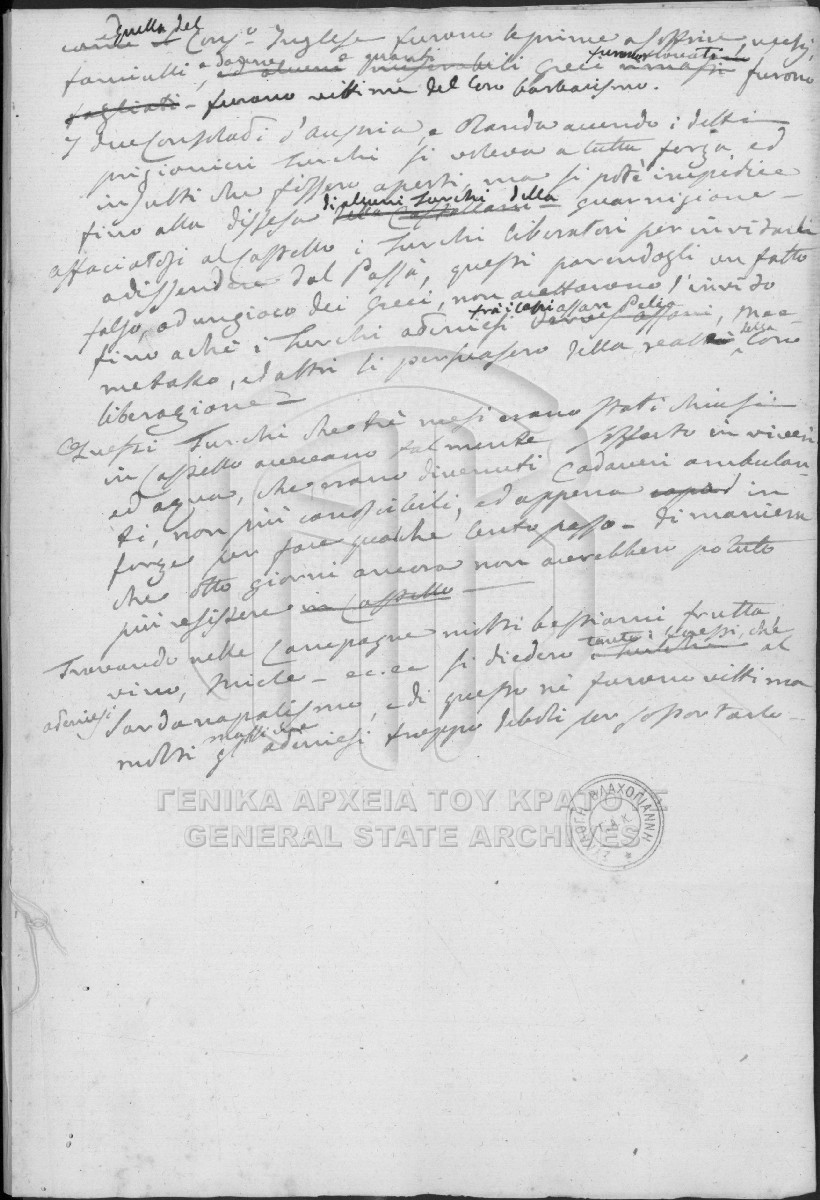 e quella del
come il Cons.o Inglese furono le prime a soffrire, vecchj,
fanciulli, e donne, ed alcuni e quanti miserabili Greci furono trovati rimasti furono
tagliati - furono vittime del loro barbarismo.
I due Consolati d'Austria, e Olanda avendo i detti
prigionieri Turchi si voleva a tutta forza ed
insulti che fossero aperti, ma si potè impedire
fino alla dissesa di alcuni Turchi della della Castellani guarnigione -
affaciatosi al Castello i Turchi liberatori per invidarli
a dissendere dal Passà, questi parendogli un fatto
falso, ed un gioco dei Greci, non accettarono l'invido
fino a chè i Turchi adenesi tra i quali assan
metakko, ed altri li persuasero della realtà della loro
liberazione -
Questi Turchi che trè mesi erano stati chiusi
in Castello aveano talmente sofferto in viveri
ed aqua, che erano divenuti Cadaveri ambulan-
ti, non più conoscibili, ed appena in
forze per fare qualche lento passo - Di maniera
che otto giorni ancora non averebbero potuto
più resistere in Castello -
Trovando nelle Campagne molti bestiami frutta
vino, miele - ec. ec si diedero tanto i Greci, che al
Sardanapalismo, e di questo nè furono vittima
adenesi
molti massime gl' adenesi troppo deboli per soportarlo -
ΓΕΝΙΚΑ ΑΡΧΕΙΑ ΤΟΥ ΚΡΑΤΟΥΣ
GENERAL STATE ARCHIVES
ΣΥΛΛΟΓΗ ΒΛΑΧΟΓΙΑΝΝΗ
Γ.Α.Κ.